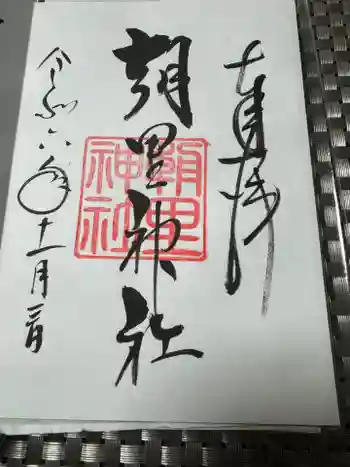 奉拝
朝里神社
朝里
神社
令和六年十一月三日